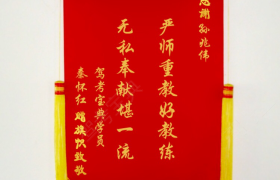 感谢孙兆伟
严师重教好教练
无私奉献堪一流
驾考宝典学员
秦怀红 赠旗帜致敬